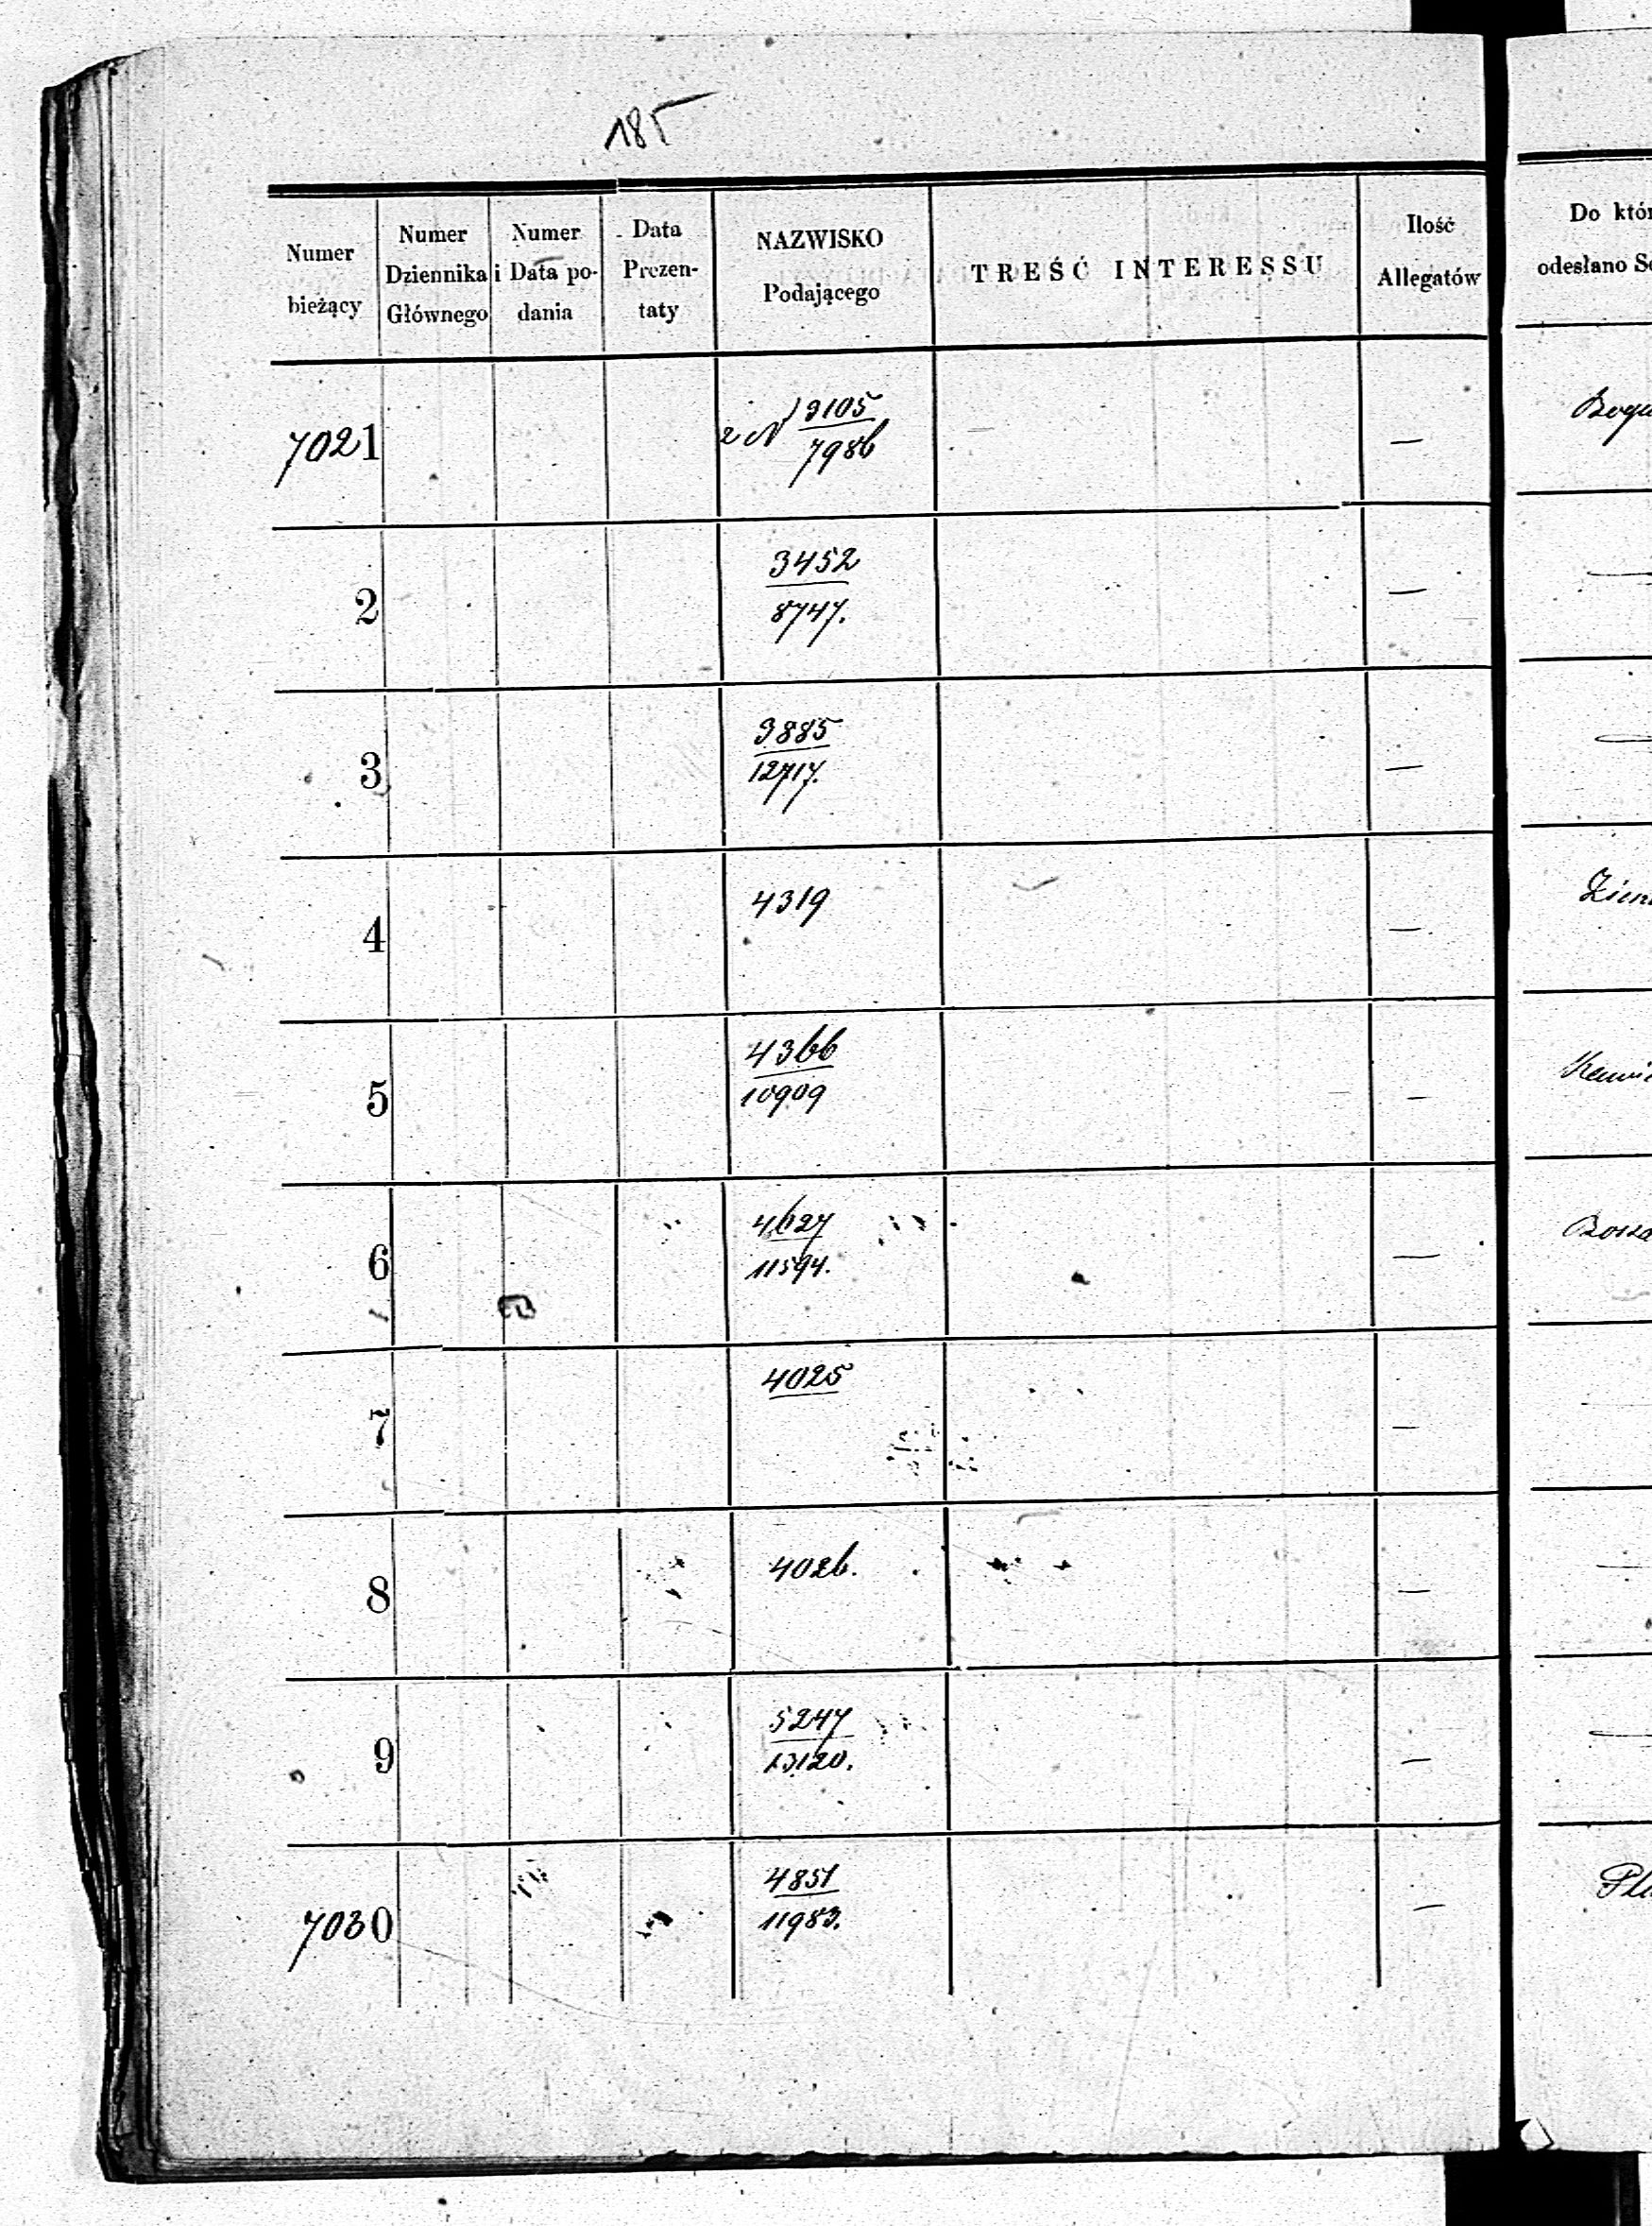 185
Numer bieżący
Numer Dziennika Głównego
Numer i Data po- dania
Data Prezen- taty
NAZWISKO Podającego
TREŚĆ INTERESSU
Ilość Allegatów
Do któr
odesłano Se
7021
3105
7986
—
2
3452
8747.
—
3
3885
12717.
—
4
4319
—
5
4366
10909
—
6
4627
11594.
—
7
4025
—
8
4026.
—
9
5247
13120.
—
7030
4851
11983.
—